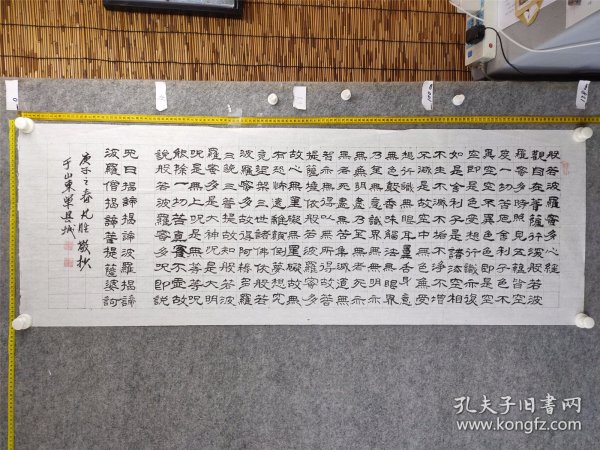 般若波羅蜜多心經
觀自在菩薩行深般若波
羅蜜多時照見五蘊皆空
度一切苦厄舍利子色不
異空空不異色色即是空
空即是色受想行識亦復
如是舍利子是諸法空相
不生不滅不垢不淨不增
不減是故空中無色無受
想行識無眼耳鼻舌身意
無色聲香味觸法無眼界
乃至無意識界無無明亦
無無明盡乃至無老死亦
無老死盡無苦集滅道無
智亦無得以無所得故菩
提薩埵依般若波羅蜜多
故心無罣礙無罣礙故無
有恐怖遠離顛倒夢想究
竟涅槃三世諸佛依般若
波羅蜜多故得阿耨多羅
三藐三菩提故知般若波
羅蜜多是大神咒是大明
咒是無上咒是無等等咒
能除一切苦真實不虛故
說般若波羅蜜多咒即說
咒曰揭諦揭諦波羅揭諦
波羅僧揭諦菩提薩婆訶
庚子之春敬抄
于山東單县城
孔夫子旧书网
www.kongfz.com